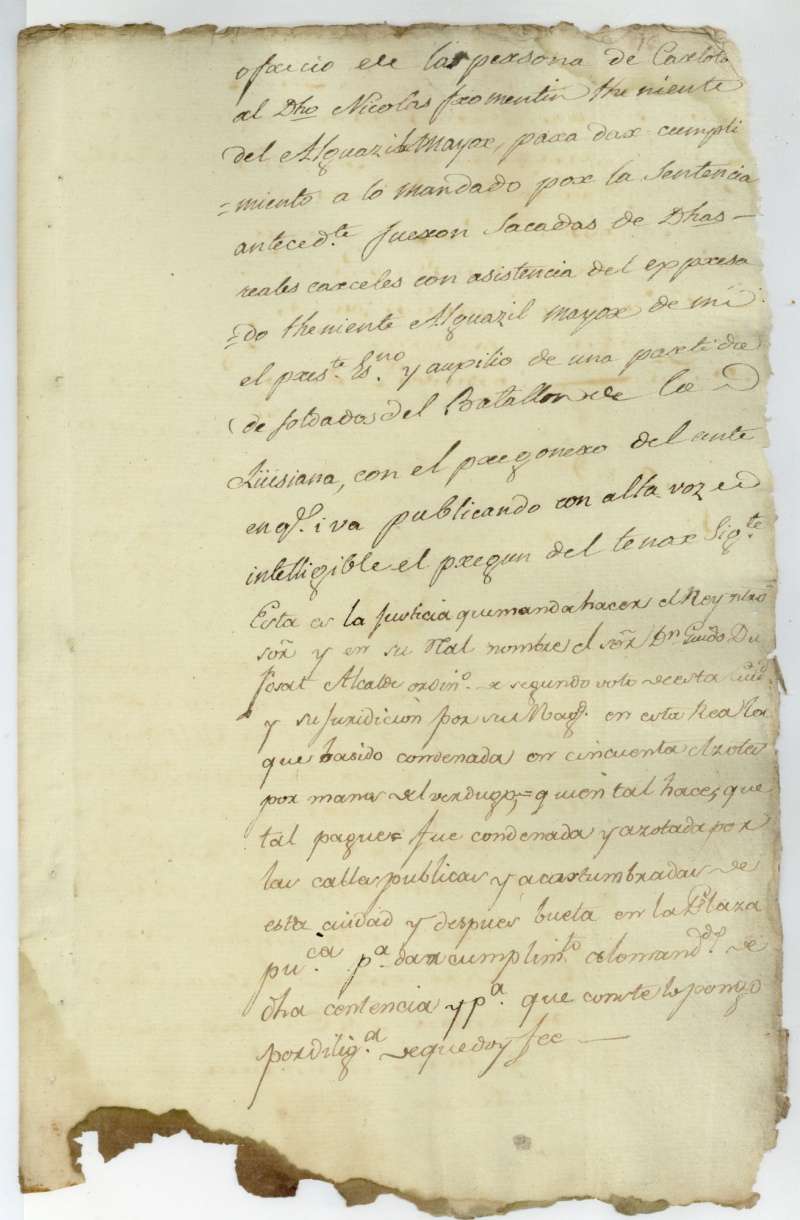 ofrecio ele la persona de Carlota
al Dho Nicolas fromentin theniente
del Alguazil Mayor, para dar cumpli
=miento a lo mandado por la Sentencia
anteced.te fueron Sacadas de Dhas—
reales carceles con asistencia del expresa
=do theniente Alguazil mayor de mi
el pres.te Es.no y auxilio de una partida
de soldados del Batallon de la
Luisiana, con el pregonero del ante
en q.e iva publicando con alta voz e
intelligible el pregun del tenor Sig.te
Esta es la Justicia que manda hacer el Rey ntro
sōr y en su Rāl nombre el sōr Dn Guido Du
fosat Alcalde ordin.o de segundo voto de esta Ciud.
y su Juridicion por su Mag.d en esta Rea
que ha sido condenada en cincuenta Azotes
por manos del verdugo,= quien tal hace, que
tal pague= fue condenada y azotada por
las calles publicas y acostumbradas de
esta ciudad y despues buelta en la Plaza
pu.ca p.a dar cumplim.to a lo mand.do de
dha centencia y p.a que conste lo pongo
por dilig.a de que doy fee —